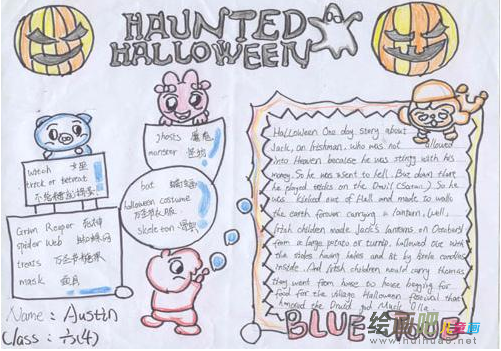 HAUNTED
HALLOWEEN
witch 女巫
trick or retreat
不给糖就捣蛋
Grim Reaper 死神
spider Web 蜘蛛网
treats 万圣节糖果
mask 面具
Name : Austin
Class : 六(4)
ghosts 魔鬼
monster 怪物
bat 蝙蝠
halloween costume
万圣节衣服
skeleton
Halloween One day story about
Jack, an Irishman, who was not allowed
into Heaven because he was stingy with his
money. So he was sent to hell. But down there
he played tricks on the Devil (Satan). So he
was kicked out of Hell and made to walk
the earth forever carrying a lantern. Well,
Irish children made Jack's lanterns on October
from a large potato or turnip, hallowed out with
the sides having holes and lit by little candles
inside. And Irish children would carry them as
they went from house to house begging for
food for the village Halloween festival that
honored the Druid god Muck Olla.
BLUE
绘画吧
www.huihua8.com